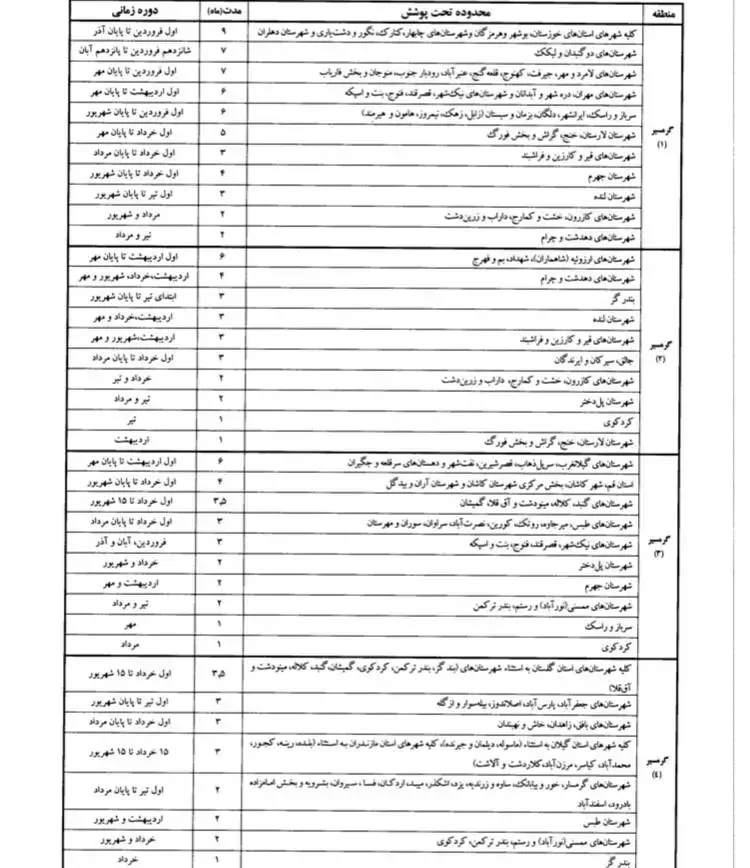 منطقه محدوده تحت پوشش مدت(ماه) دوره زمانی
گرمسیر (۱)
کلیه شهرهای استان‌های خوزستان، بوشهر وهرمزگان وشهرستان‌های چابهار، کنارک، نگور و دشت‌یاری و شهرستان دهلران ۹ اول فروردین تا پایان آذر
شهرستان‌های دوگنبدان و لیکک ۷ شانزدهم فروردین تا پانزدهم آبان
شهرستان‌های لامرد و مهر، جیرفت، کهنوج، قلعه‌گنج، عنبرآباد، رودبار جنوب، منوجان و بخش فاریاب ۷ اول فروردین تا پایان مهر
شهرستان‌های مهران، دره شهر و آبدانان و شهرستان‌های نیک‌شهر، قصرقند، فنوج، بنت و اسپکه ۶ اول اردیبهشت تا پایان مهر
سرباز و راسک، ایرانشهر، دلگان، بزمان و سیستان (زابل، زهک، نیمروز، هامون و هیرمند) ۶ اول فروردین تا پایان شهریور
شهرستان لارستان، خنج، گراش و بخش فورگ ۵ اول خرداد تا پایان مهر
شهرستان‌های قیر و کارزین و فراشبند ۳ اول خرداد تا پایان مرداد
شهرستان جهرم ۴ اول خرداد تا پایان شهریور
شهرستان لنده ۳ اول تیر تا پایان شهریور
شهرستان‌های کازرون، خشت و کمارج، داراب و زرین‌دشت ۲ مرداد و شهریور
شهرستان‌های دهدشت و چرام ۲ تیر و مرداد
گرمسیر (۲)
شهرستان‌های ارزوئیه (شاهماران)، شهداد، بم و فهرج ۶ اول اردیبهشت تا پایان مهر
شهرستان‌های دهدشت و چرام ۴ اردیبهشت،خرداد، شهریور و مهر
بندر گز ۳ ابتدای تیر تا پایان شهریور
شهرستان لنده ۳ اردیبهشت،خرداد و مهر
شهرستان‌های قیر و کارزین و فراشبند ۳ اردیبهشت،شهریور و مهر
جالق، سیرکان و ایرندگان ۳ اول خرداد تا پایان مرداد
شهرستان‌های کازرون، خشت و کمارج، داراب و زرین‌دشت ۲ خرداد و تیر
شهرستان پل‌دختر ۲ تیر و مرداد
کردکوی ۱ تیر
شهرستان لارستان، خنج، گراش و بخش فورگ ۱ اردیبهشت
گرمسیر (۳)
شهرستان‌های گیلانغرب، سرپل‌ذهاب، قصرشیرین، نفت‌شهر و دهستان‌های سرقلعه و جگیران ۶ اول اردیبهشت تا پایان مهر
استان قم، شهر کاشان، بخش مرکزی شهرستان کاشان و شهرستان آران و بیدگل ۴ اول خرداد تا پایان شهریور
شهرستان‌های گنبد، کلاله، مینودشت و آق قلا، گمیشان ۳٫۵ اول خرداد تا ۱۵ شهریور
شهرستان‌های طبس، میرجاوه، روتک، کورین، نصرت‌آباد، سراوان، سوران و مهرستان ۳ اول خرداد تا پایان مرداد
شهرستان‌های نیک‌شهر، قصرقند، فنوج، بنت و اسپکه ۳ فروردین، آبان و آذر
شهرستان پل‌دختر ۲ خرداد و شهریور
شهرستان جهرم ۲ اردیبهشت و مهر
شهرستان‌های ممسنی(نورآباد) و رستم، بندر ترکمن ۲ تیر و مرداد
سرباز و راسک ۱ مهر
کردکوی ۱ مرداد
گرمسیر (۴)
کلیه شهرستان‌های استان گلستان به استثناء شهرستان‌های (بندگز، بندر ترکمن، کردکوی، گمیشان،گنبد، کلاله، مینودشت و ۳٫۵ اول خرداد تا ۱۵ شهریور
آق‌قلا)
شهرستان‌های جعفرآباد، پارس‌آباد، اصلاندوز، بیله‌سوار و ازگله ۳ اول تیر تا پایان شهریور
شهرستان‌های بافق، زاهدان، خاش و نهبندان ۳ اول خرداد تا پایان مرداد
کلیه شهرهای استان گیلان به استثناء (ماسوله، دیلمان و جیرنده)، کلیه شهرهای استان مازندران به استثناء (بلده، رینه، کجور، ۳ ۱۵ خرداد تا ۱۵ شهریور
محمدآباد، کیاسر، مرزن‌آباد، کلاردشت و آلاشت)
شهرستان‌های گرمسار، خور و بیابانک، ساوه و زرندیه، یزد، اشکذر، میبد، اردکان، فسا، سیروان، بشرویه و بخش امامزاده ۲ اول تیر تا پایان مرداد
بادرود، اسفندآباد
شهرستان طبس ۲ اردیبهشت و شهریور
شهرستان‌های ممسنی(نورآباد) و رستم، بندر ترکمن، کردکوی ۲ خرداد و شهریور
بندر گز ۱ خرداد